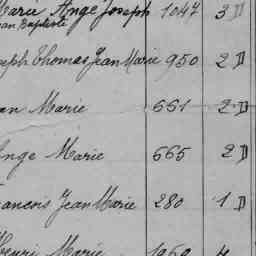 Marie Ange Joseph 1047 3 D
Jean Baptiste
Joseph Thomas Jean Marie 950 2 D
Jean Marie 661 2 D
Ange Marie 665 2 D
Francois Jean Marie 280 1 D
Henri Marie 1969 4